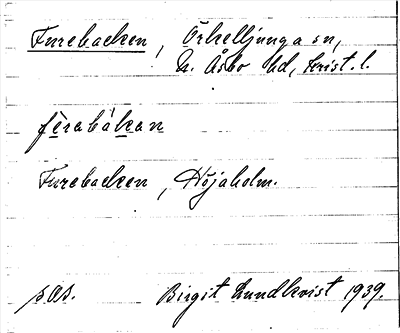 Furebacken, Örkelljunga sn,
N. Åsbo hd, Krist. l.
fèrabákan
Furebacken, Höjaholm.
pas. Birgit Lundkvist 1939.